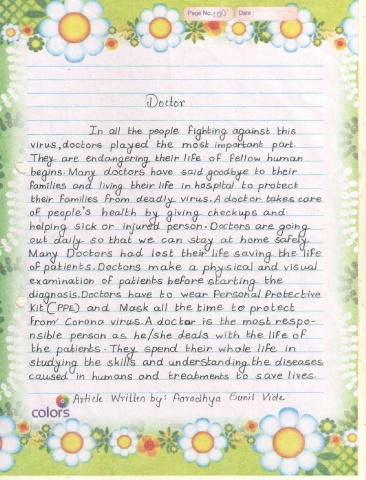 Page No. 100 Date:
Doctor
In all the people fighting against this
virus, doctors played the most important part.
They are endangering their life of fellow human
begins. Many doctors have said goodbye to their
families and living their life in hospital to protect
their families from deadly virus. A doctor takes care
of people's health by giving checkups and
helping sick or injured person. Doctors are going
out daily so that we can stay at home safely.
Many Doctors had lost their life saving the life
of patients. Doctors make a physical and visual
examination of patients before starting the
diagnosis. Doctors have to wear Personal Protective
Kit (PPE) and Mask all the time to protect
from Corona virus. A doctor is the most respo-
nsible person as he/she deals with the life of
the patients. They spend their whole life in
studying the skills and understanding the diseases
caused in humans and treatments to save lives.
Article Written by: Aaradhya Sunil Vide
colors